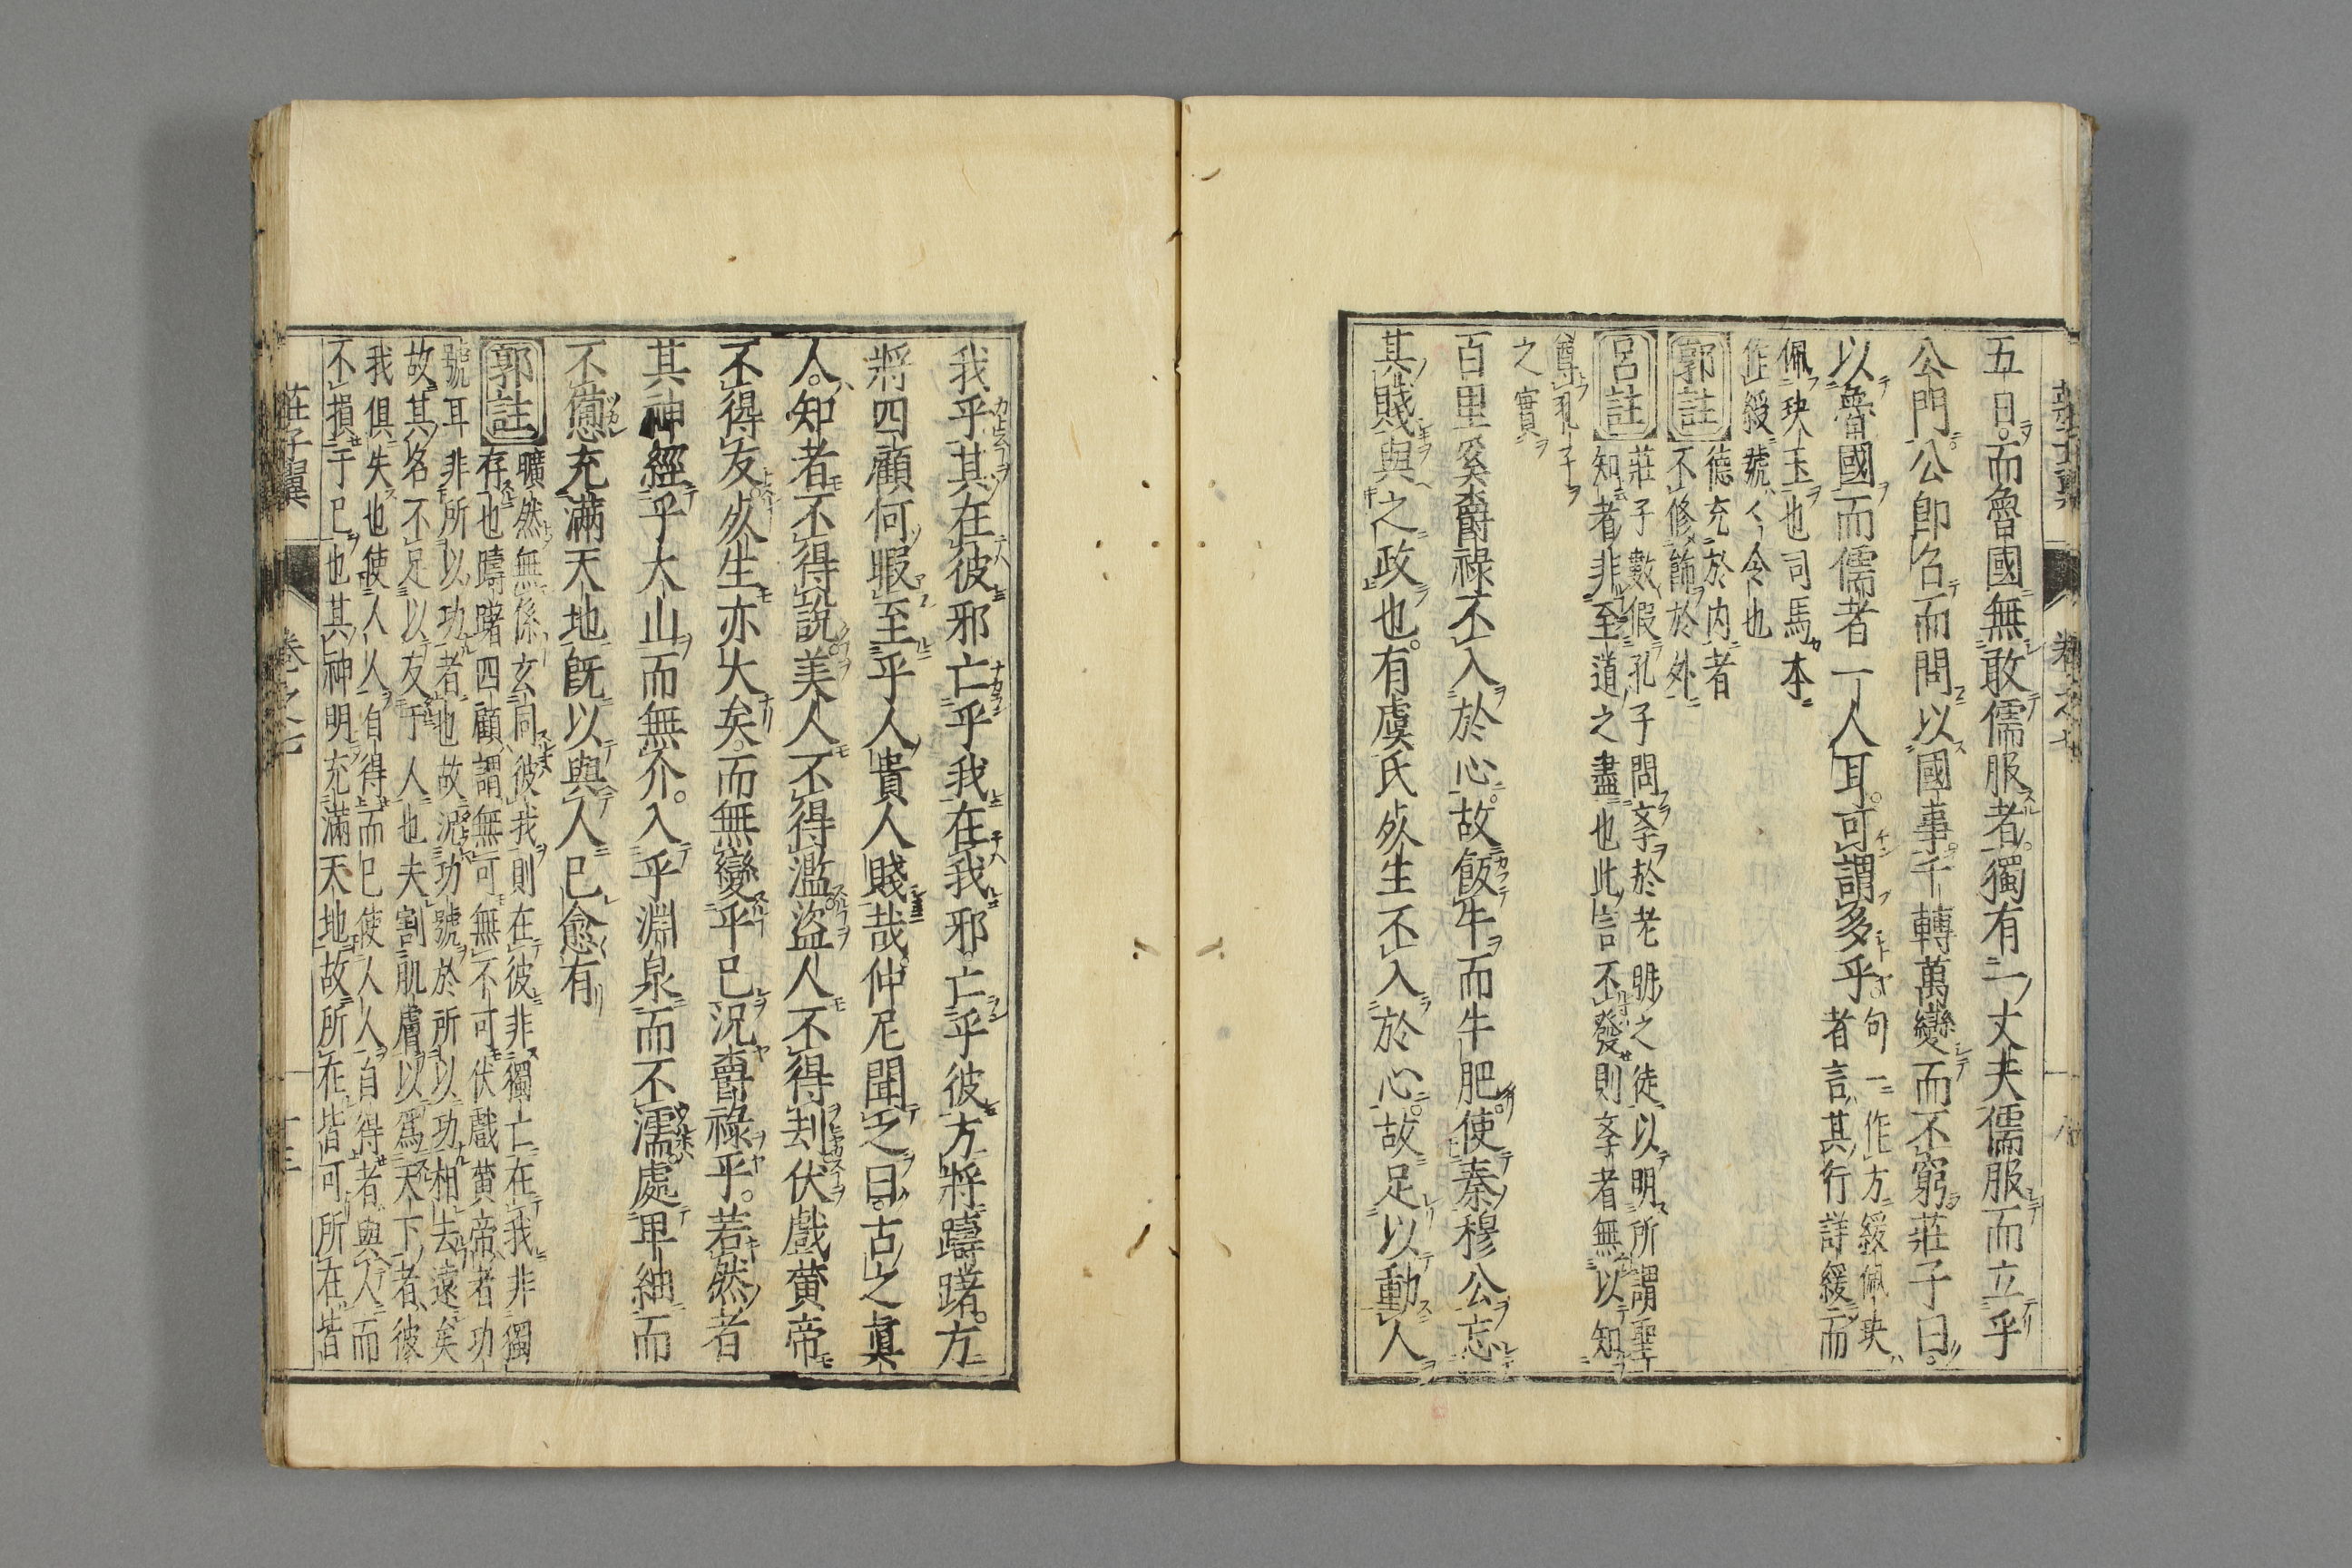 五日而魯國無敢儒服者獨有一丈夫儒服而立乎
公門公卽召而問以國事千轉萬變而不窮莊子曰
以魯國而儒者一人耳可謂多乎
句一作方緩佩玦
者言其行詳緩而
佩玦玉也司馬本
作綬號号令也
郭註
德充於内者
不修飾於外
呂註
莊子數假孔子問斈於老聃之徒以明所謂聖
知者非至道之盡也此言不發則斈者無以知
尊孔子
之實
百里奚爵祿不入於心故飯牛而牛肥使秦穆公忘
其賤與之政也有虞氏死生不入於心故足以動人
我乎其在彼邪亡乎我在我邪亡乎彼方將躊躇方
將四顧何暇至乎人貴人賤哉仲尼聞之曰古之眞
人知者不得說美人不得濫盜人不得刦伏戲黄帝
不得友死生亦大矣而無變乎已況爵祿乎若然者
其神經乎大山而無介入乎淵泉而不濡處卑細而
不憊充滿天地旣以與人已愈有
郭註
曠然無係玄同彼我則在彼非獨亡在我非獨
存也躊躇四顧謂無可無不可伏戲黄帝者功
號耳非所以功者也故況功號於所以功相去遠矣
故其名不足以友于人也夫割肌膚以爲天下者彼
我俱失也使人人自得而已使人人自得者與人而
不損于已也其神明充滿天地故所在皆可所在皆
莊子翼
卷之七
十三